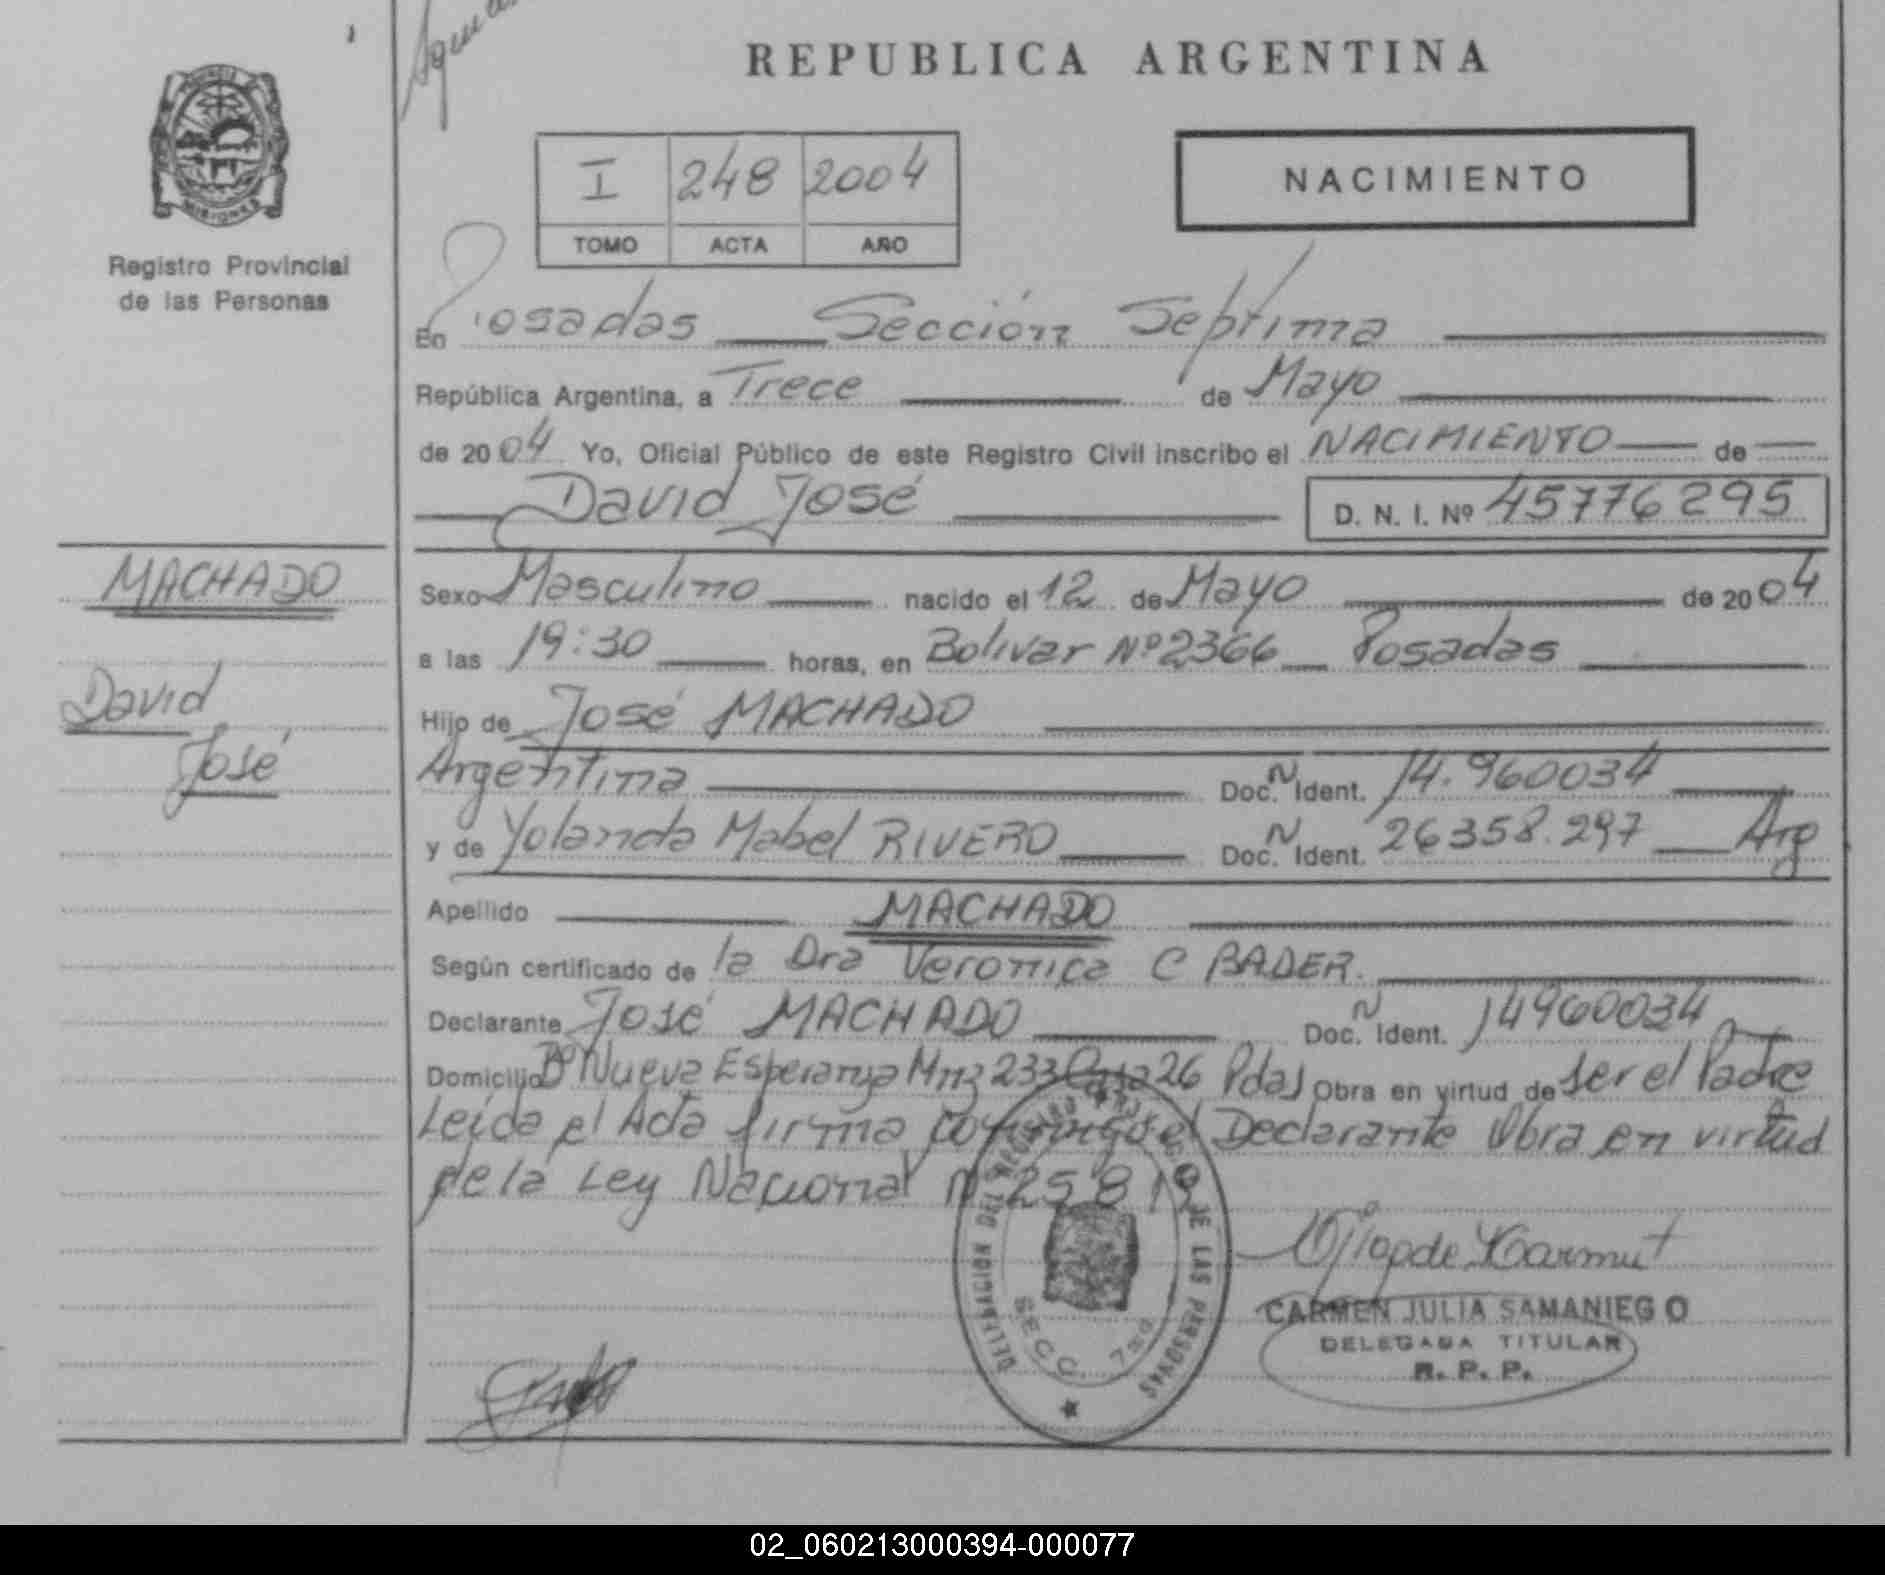 REPUBLICA ARGENTINA
PROVINCIA
MISIONES
Registro Provincial
de las Personas
I 248 2004
TOMO ACTA AÑO
NACIMIENTO
En Posadas Sección Septima
República Argentina, a Trece de Mayo
de 2004 Yo, Oficial Público de este Registro Civil inscribo el NACIMIENTO de
David José D. N. I. Nº 45776295
MACHADO
David
José
Sexo Masculino nacido el 12 de Mayo de 2004
a las 19:30 horas, en Bolivar Nº 2366 Posadas
Hijo de José MACHADO
Argentina Doc. N Ident. 14.960034
y de Yolanda Mabel RIVERO Doc. N Ident. 26358.297 Arg
Apellido MACHADO
Según certificado de la Dra Veronica C BADER.
Declarante José MACHADO Doc. N Ident. 14960034
Domicilio Bº Nueva Esperanza Mnz 233 Casa 26 Pdas Obra en virtud de ser el Padre
Leida el Acta firma conmigo el Declarante Obra en virtud
de la Ley Nacional Nº 25819
DELEGACION DEL REGISTRO PROVINCIAL DE LAS PERSONAS
SECC. 7ma
CARMEN JULIA SAMANIEGO
DELEGADA TITULAR
R. P. P.
02_060213000394-000077